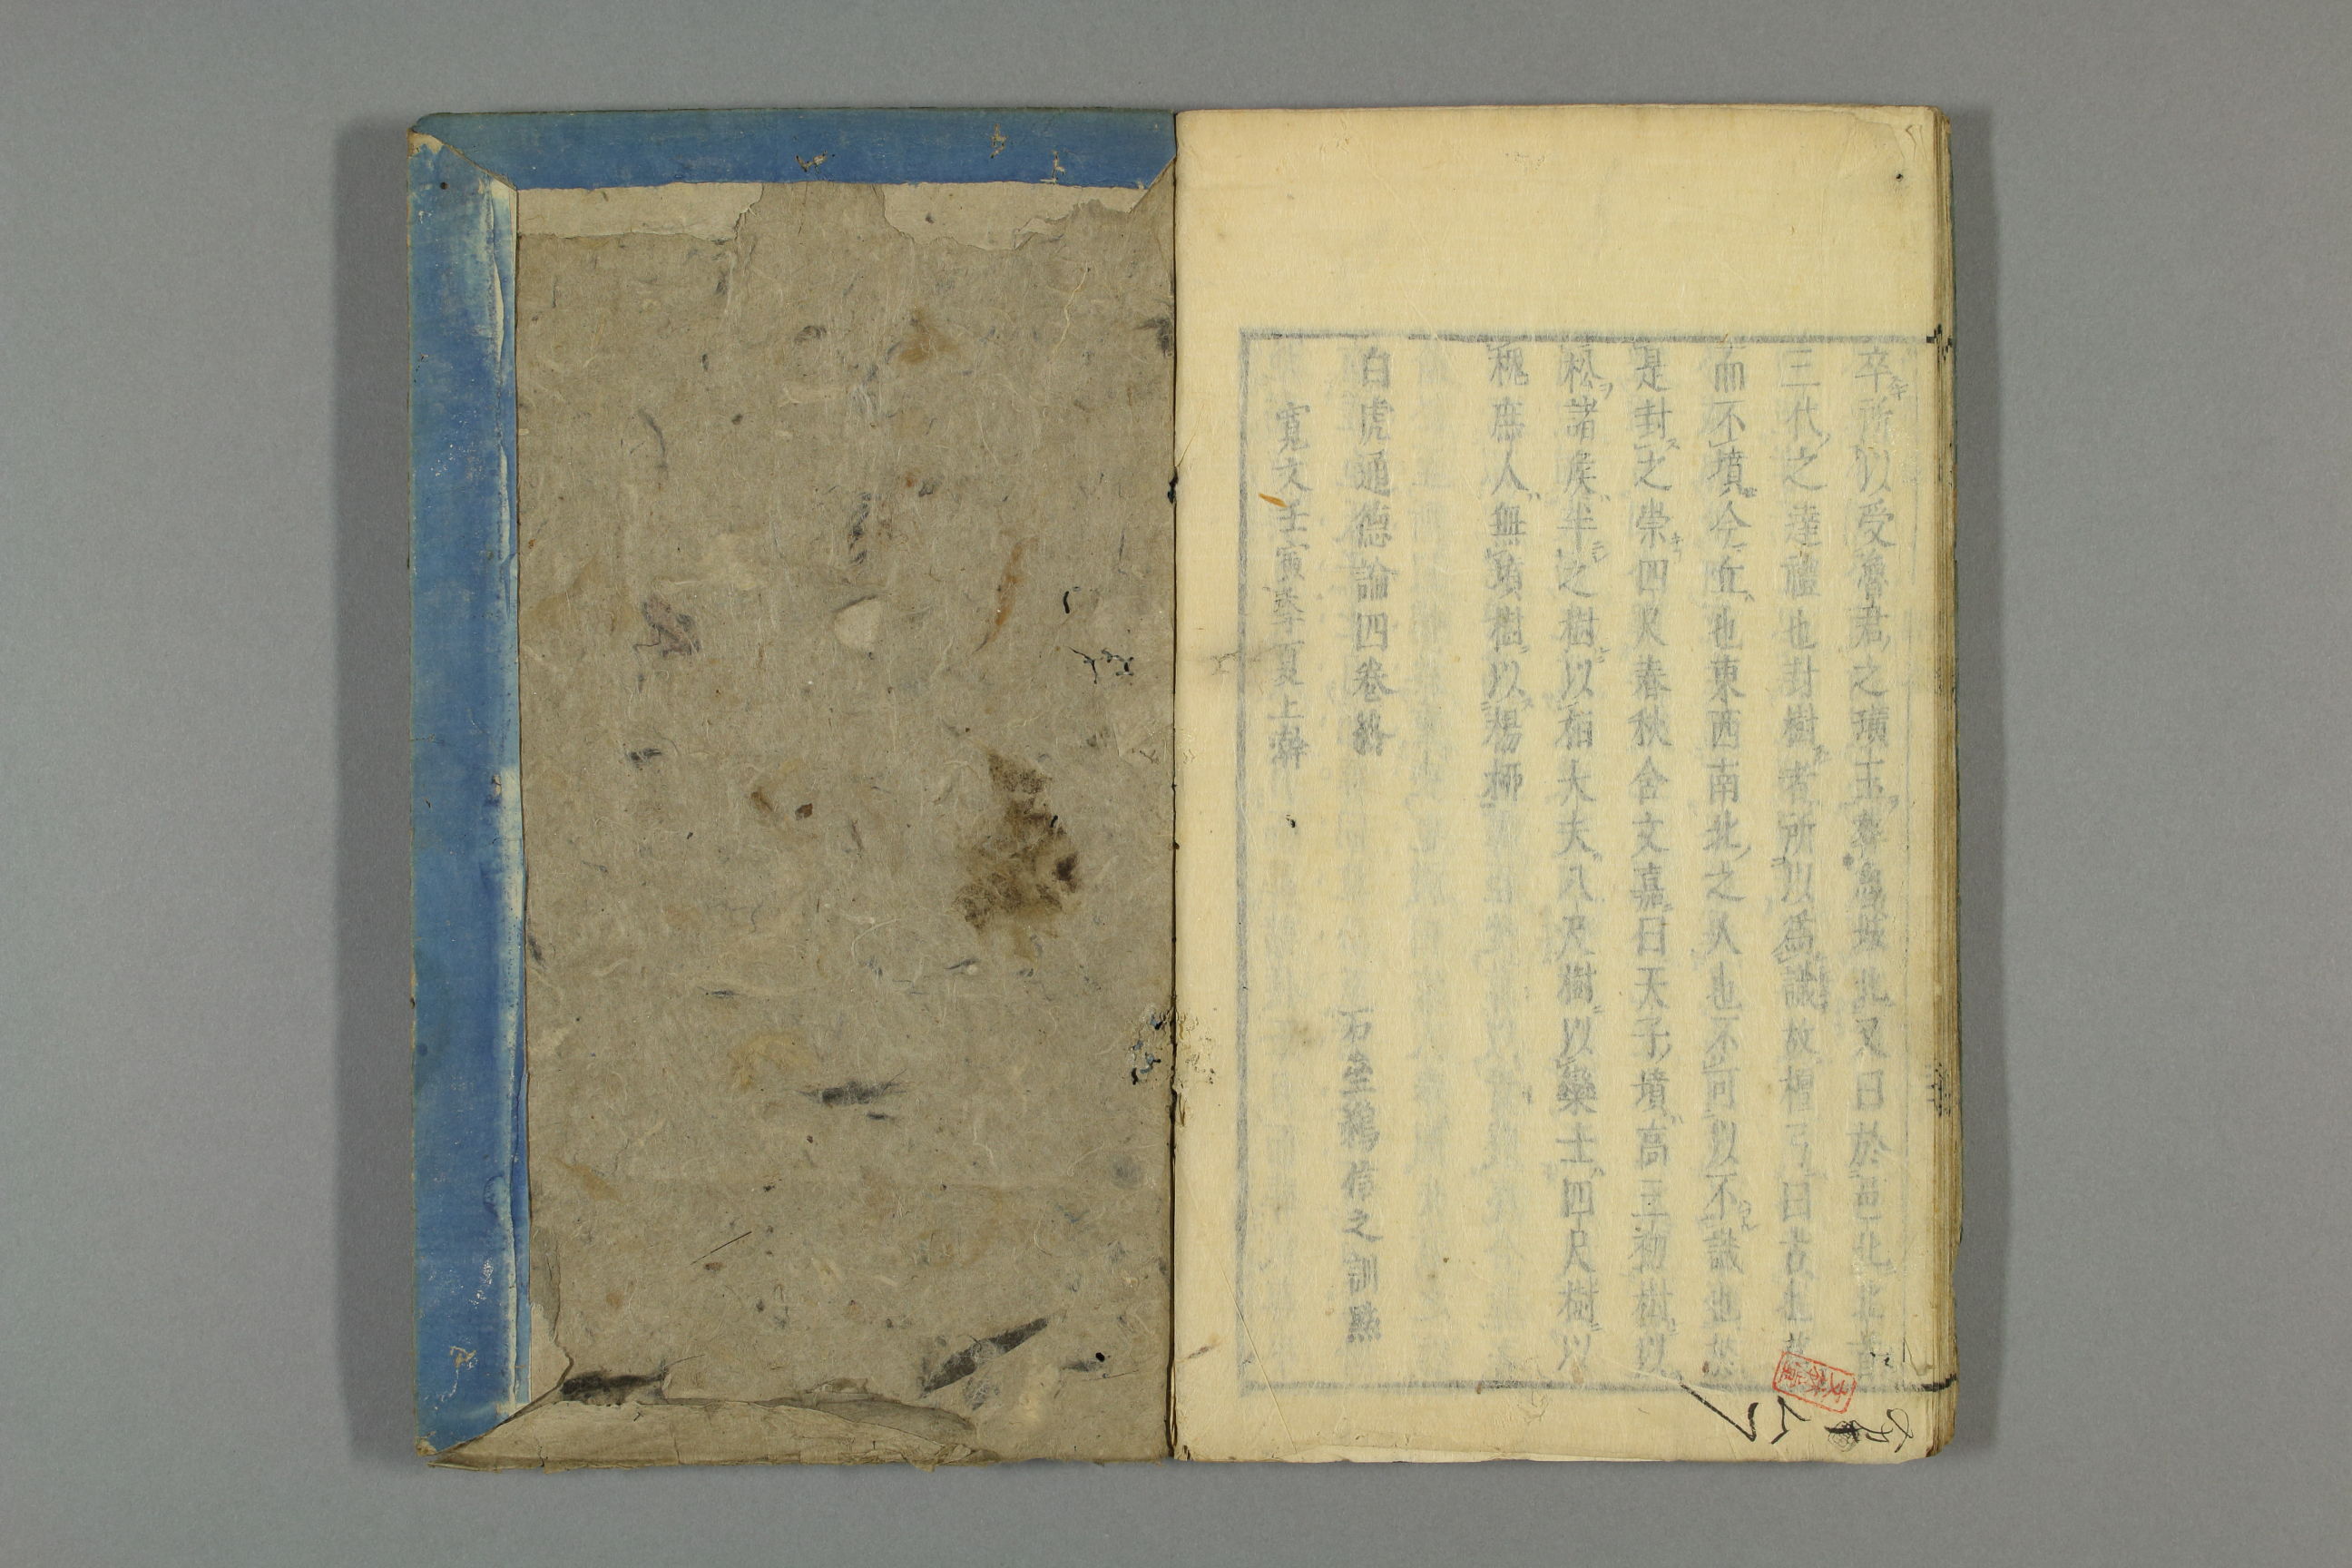 卒所以受魯君之璜玉葬魯城北又曰於邑北北首
三代之達禮也封樹者所以爲識故檀弓曰古也墓
而不墳今丘也東西南北之人也不可以不識也於
是封之崇四尺春秋含文嘉曰天子墳高三仞樹以
松諸侯半之樹以栢大夫八尺樹以欒士四尺樹以
槐庶人無墳樹以楊柳
白虎通德論四卷終
石塗鵜信之訓點
寛文壬寅季夏上澣